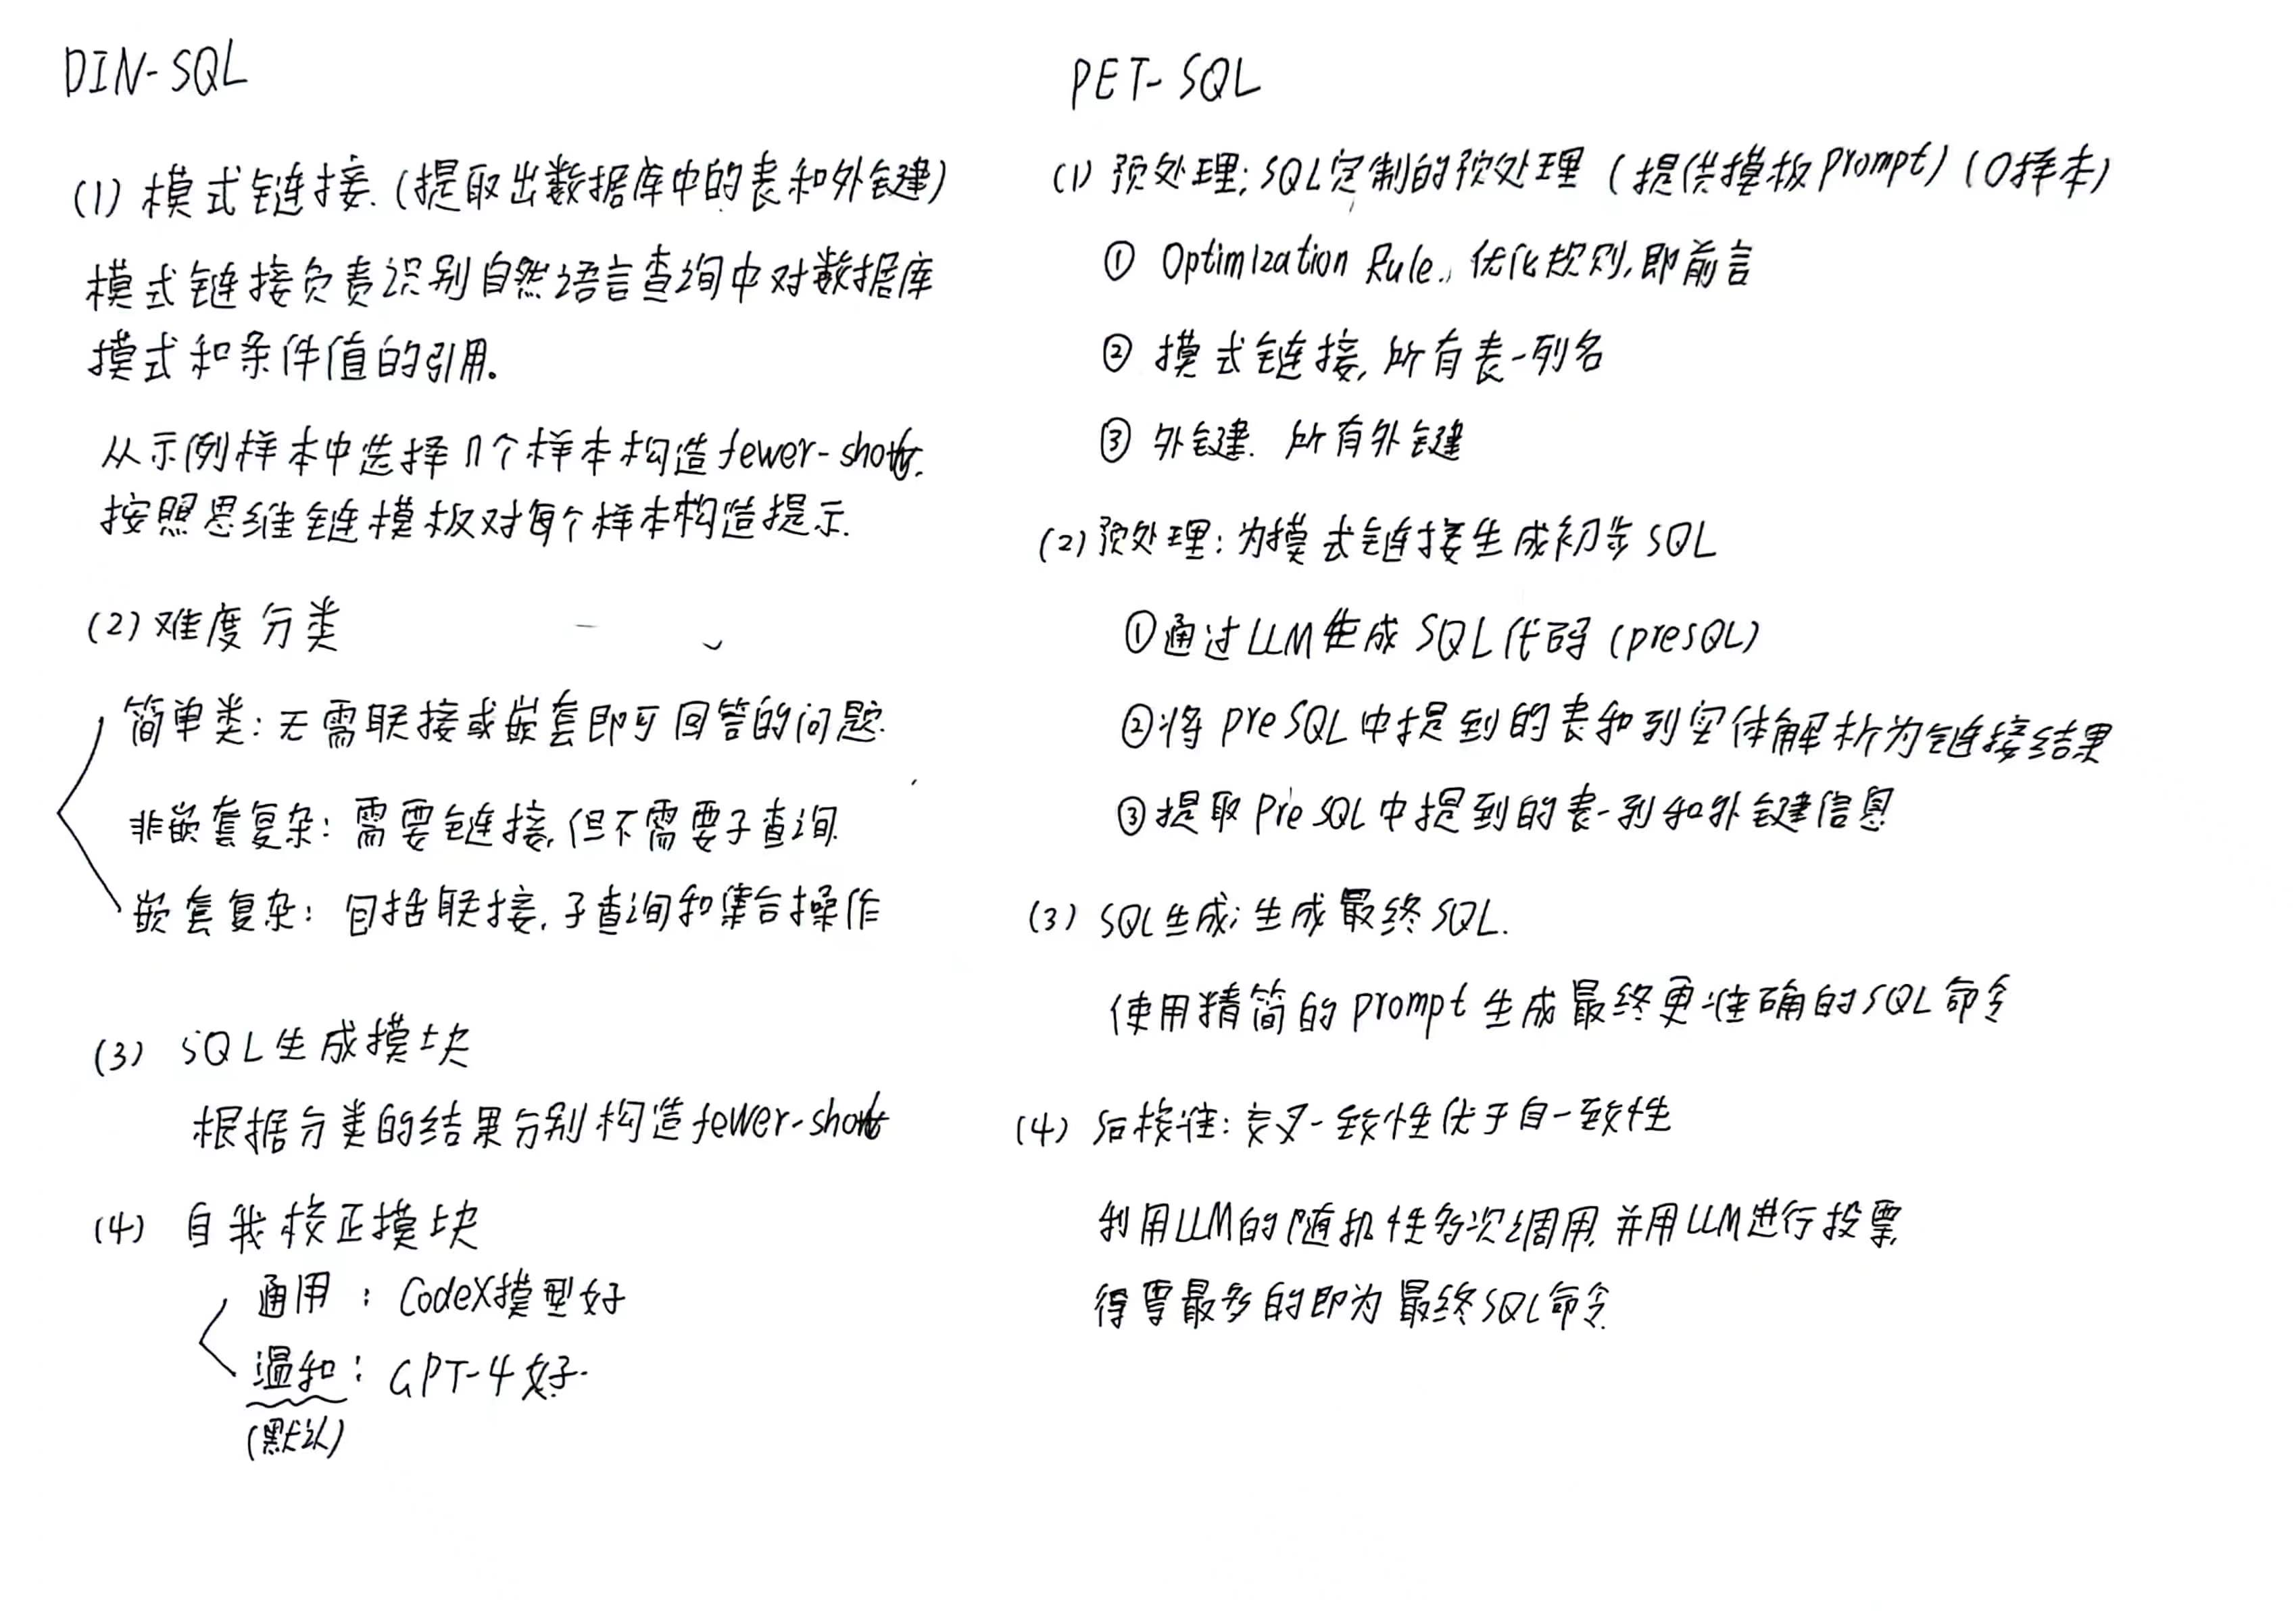 DIN-SQL
(1) 模式链接.(提取出数据库中的表和外键)
模式链接负责识别自然语言查询中对数据库
模式和条件值的引用。
从示例样本中选择n个样本构造fewer-shot.
按照思维链模板对每个样本构造提示.
(2) 难度分类
简单类:无需联接或嵌套即可回答的问题.
非嵌套复杂:需要链接,但不需要子查询.
嵌套复杂:包括联接,子查询和集合操作
(3) SQL生成模块
根据分类的结果分别构造fewer-shot
(4) 自我校正模块
通用:CodeX模型好
温和:GPT-4好.
(默认)
PET-SQL
(1) 预处理:SQL定制的预处理(提供模板prompt)(0样本)
① Optimization Rule.,优化规则,即前言
② 模式链接,所有表-列名
③ 外键.所有外键
(2) 预处理:为模式链接生成初步SQL
①通过LLM生成SQL代码(preSQL)
②将preSQL中提到的表和列实体解析为链接结果
③提取PreSQL中提到的表-列和外键信息
(3) SQL生成:生成最终SQL.
使用精简的prompt生成最终更准确的SQL命令
(4) 后校准:交叉一致性优于自一致性
利用LLM的随机性多次调用,并用LLM进行投票,
得票最多的即为最终SQL命令.